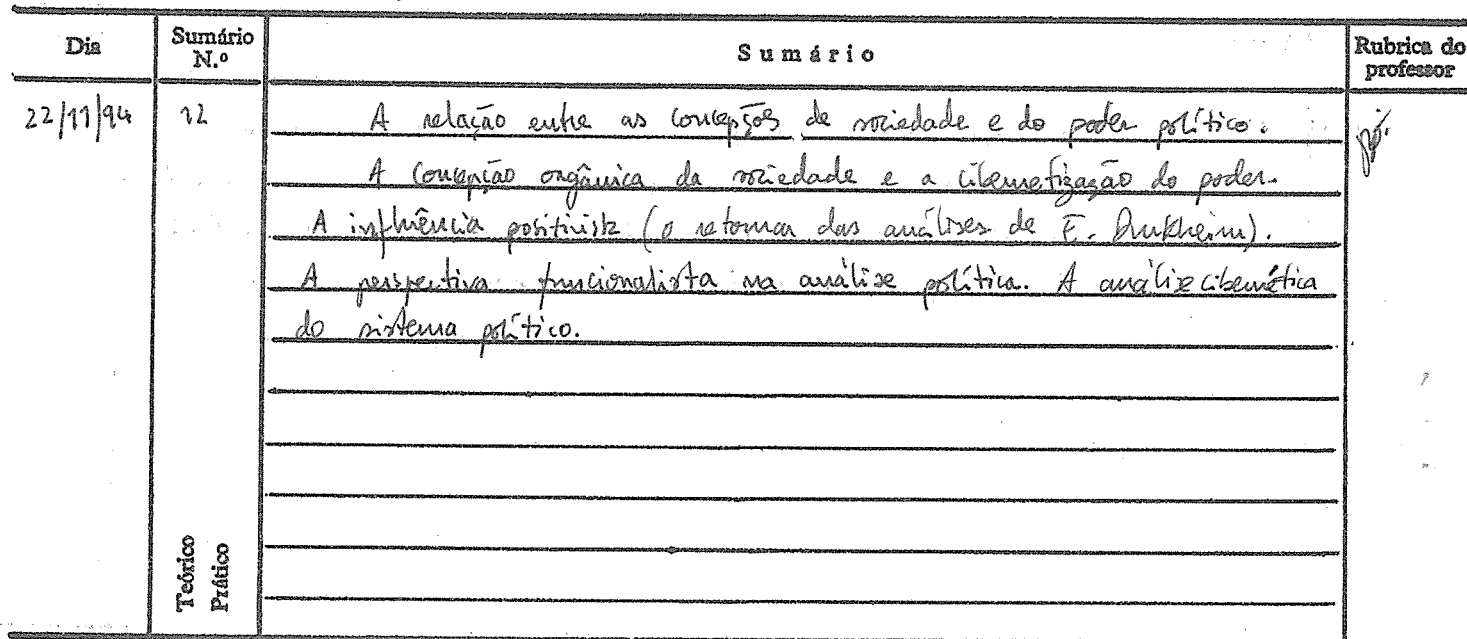 Dia Sumário N.º Sumário Rubrica do professor
22/11/94 12 A relação entre as concepções de sociedade e do poder político.
A concepção orgânica da sociedade e a cibernetização do poder.
A influência positivista (o retomar das análises de E. Durkheim).
A perspectiva funcionalista na análise política. A análise cibernética
do sistema político.
Teórico
Prático